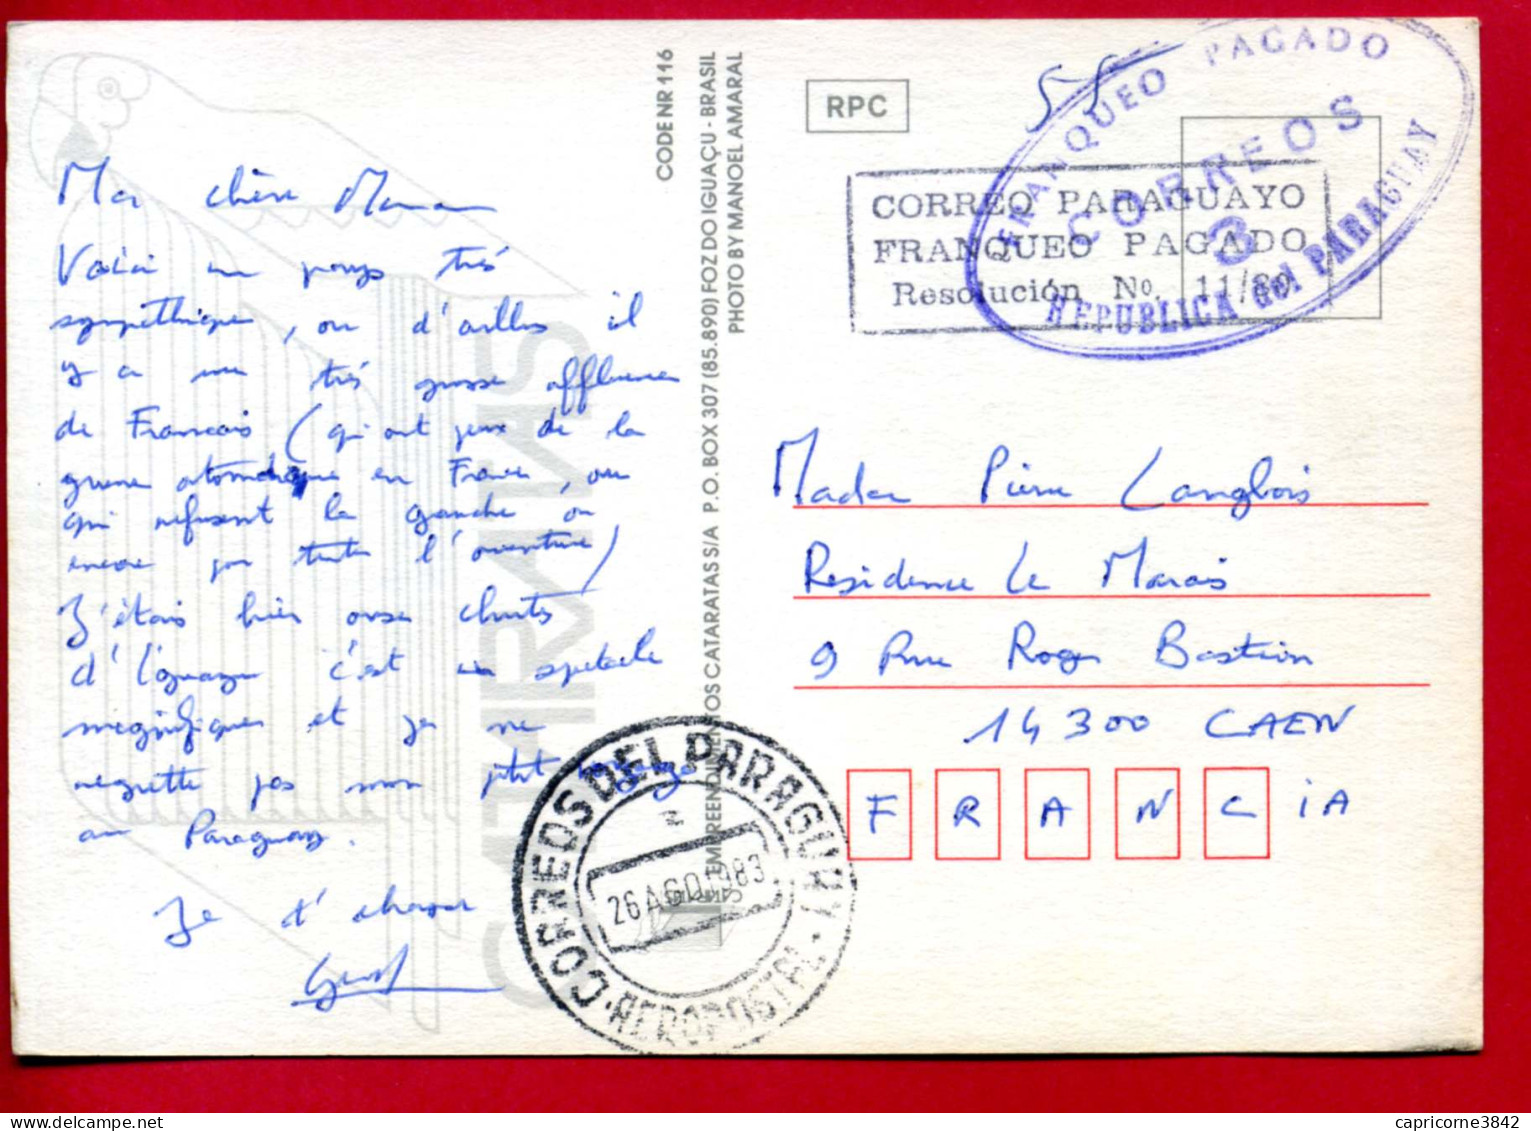 Ma chère Maman
Voici un pays très
sympathique, où d'ailleurs il
y a une très grosse affluence
de Francais (qui ont peur de la
guerre atomique en France, ou
qui refusent la gauche ou
encore par toute l'aventure)
J'étais hier aux chutes
d'Iguaçu c'est un spectacle
magnifique et je ne
regrette pas mon p'tit voyage
au Paraguay.
Je t'
CODE NR 116
EMPREENDIMENTOS CATARATAS S/A P.O. BOX 307 (85.890) FOZ DO IGUAÇU - BRASIL
PHOTO BY MANOEL AMARAL
RPC
CORREO PARAGUAYO
FRANQUEO PAGADO
Resolución No. 11/80
FRANQUEO PAGADO
CORREOS
3
REPUBLICA del PARAGUAY
Madame Pierre Langlois
Residence Le Marais
9 Rue Roger Bastion
14300 CAEN
FRANCiA
CORREOS DEL PARAGUAY
26 AGO 1983
AEROPOSTAL
capricorne3842